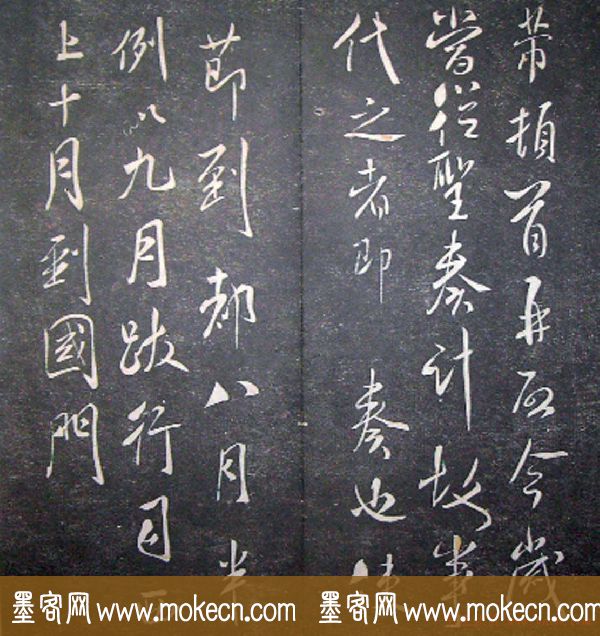 芾頓首再啓今歲
聖奏計故歲
代之者即 奏也
節到都八月半
例以九月跋行
上十月到國門
墨客网 www.mokecn.com 墨客网 www.mokecn.com